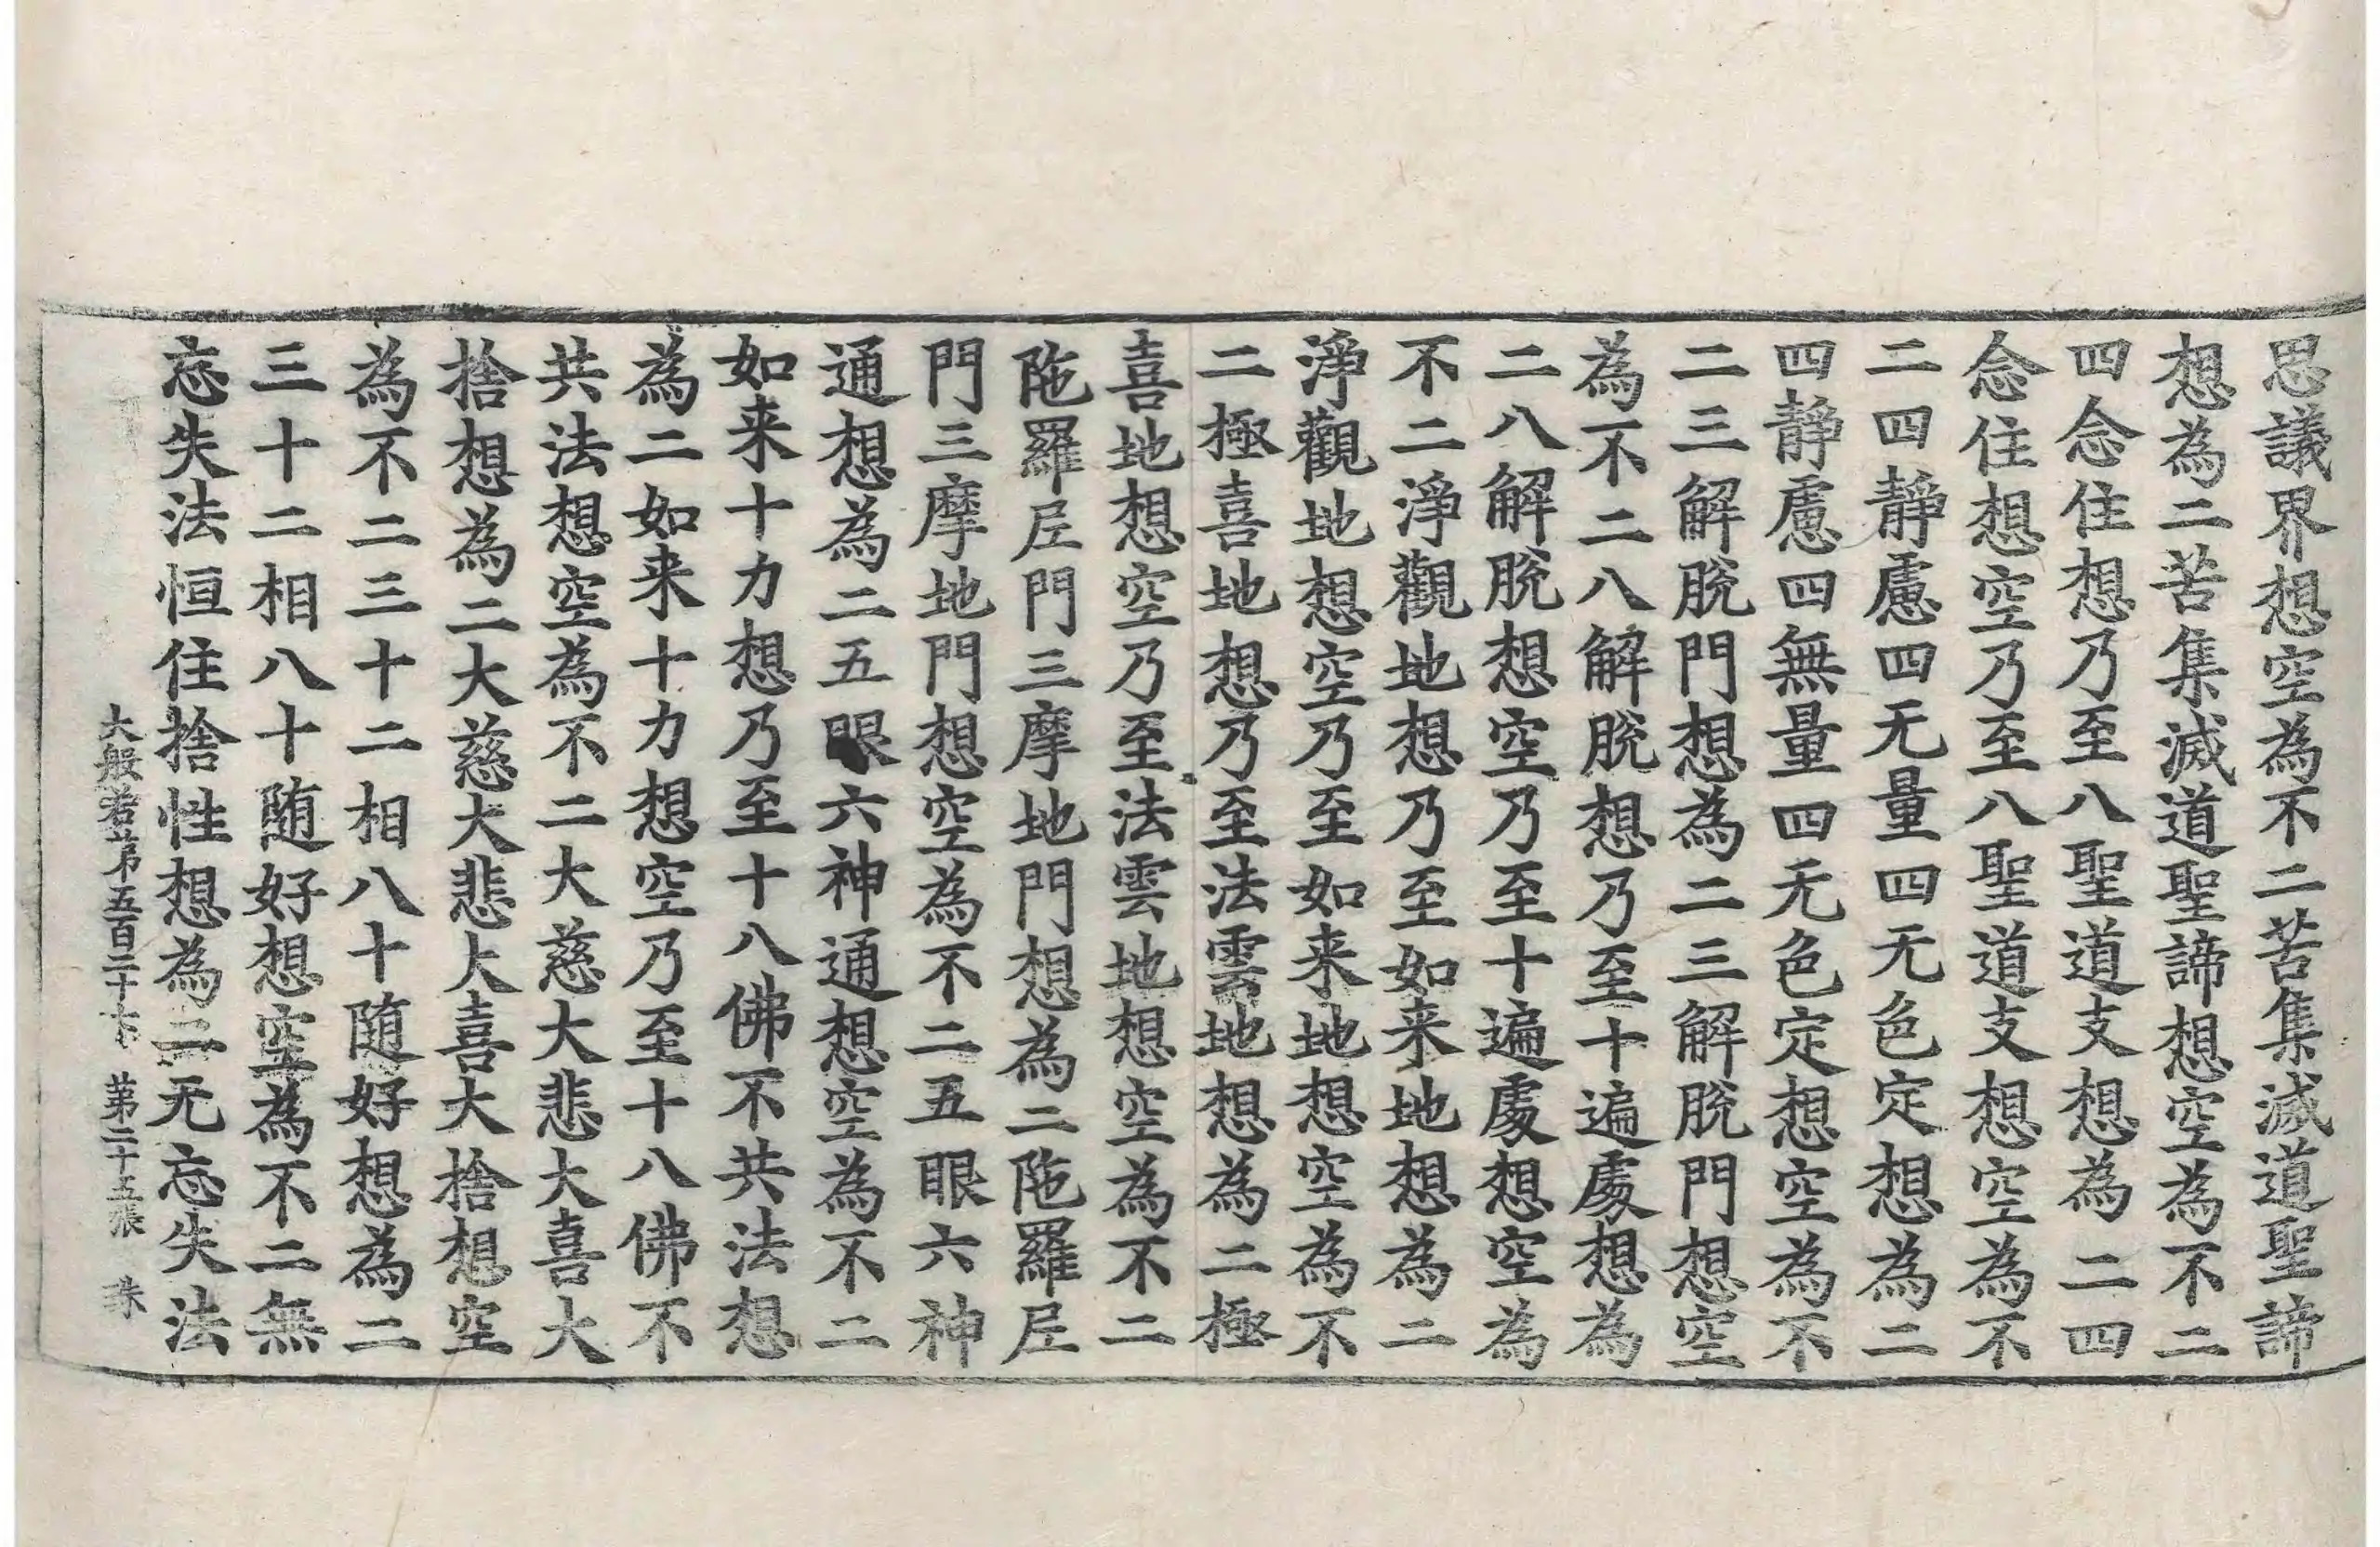 思議界想空為不二苦集滅道聖諦
想為二苦集滅道聖諦想空為不二
四念住想乃至八聖道支想為二四
念住想空乃至八聖道支想空為不
二四靜慮四无量四无色定想為二
四靜慮四無量四无色定想空為不
二三解脫門想為二三解脫門想空
為不二八解脫想乃至十遍處想為
二八解脫想空乃至十遍處想空為
不二淨觀地想乃至如来地想為二
淨觀地想空乃至如来地想空為不
二極喜地想乃至法雲地想為二極
喜地想空乃至法雲地想空為不二
陁羅尼門三摩地門想為二陁羅尼
門三摩地門想空為不二五眼六神
通想為二五眼六神通想空為不二
如来十力想乃至十八佛不共法想
為二如来十力想空乃至十八佛不
共法想空為不二大慈大悲大喜大
捨想為二大慈大悲大喜大捨想空
為不二三十二相八十隨好想為二
三十二相八十随好想空為不二無
忘失法恒住捨性想為二无忘失法
大般若第五百二十 第二十五張